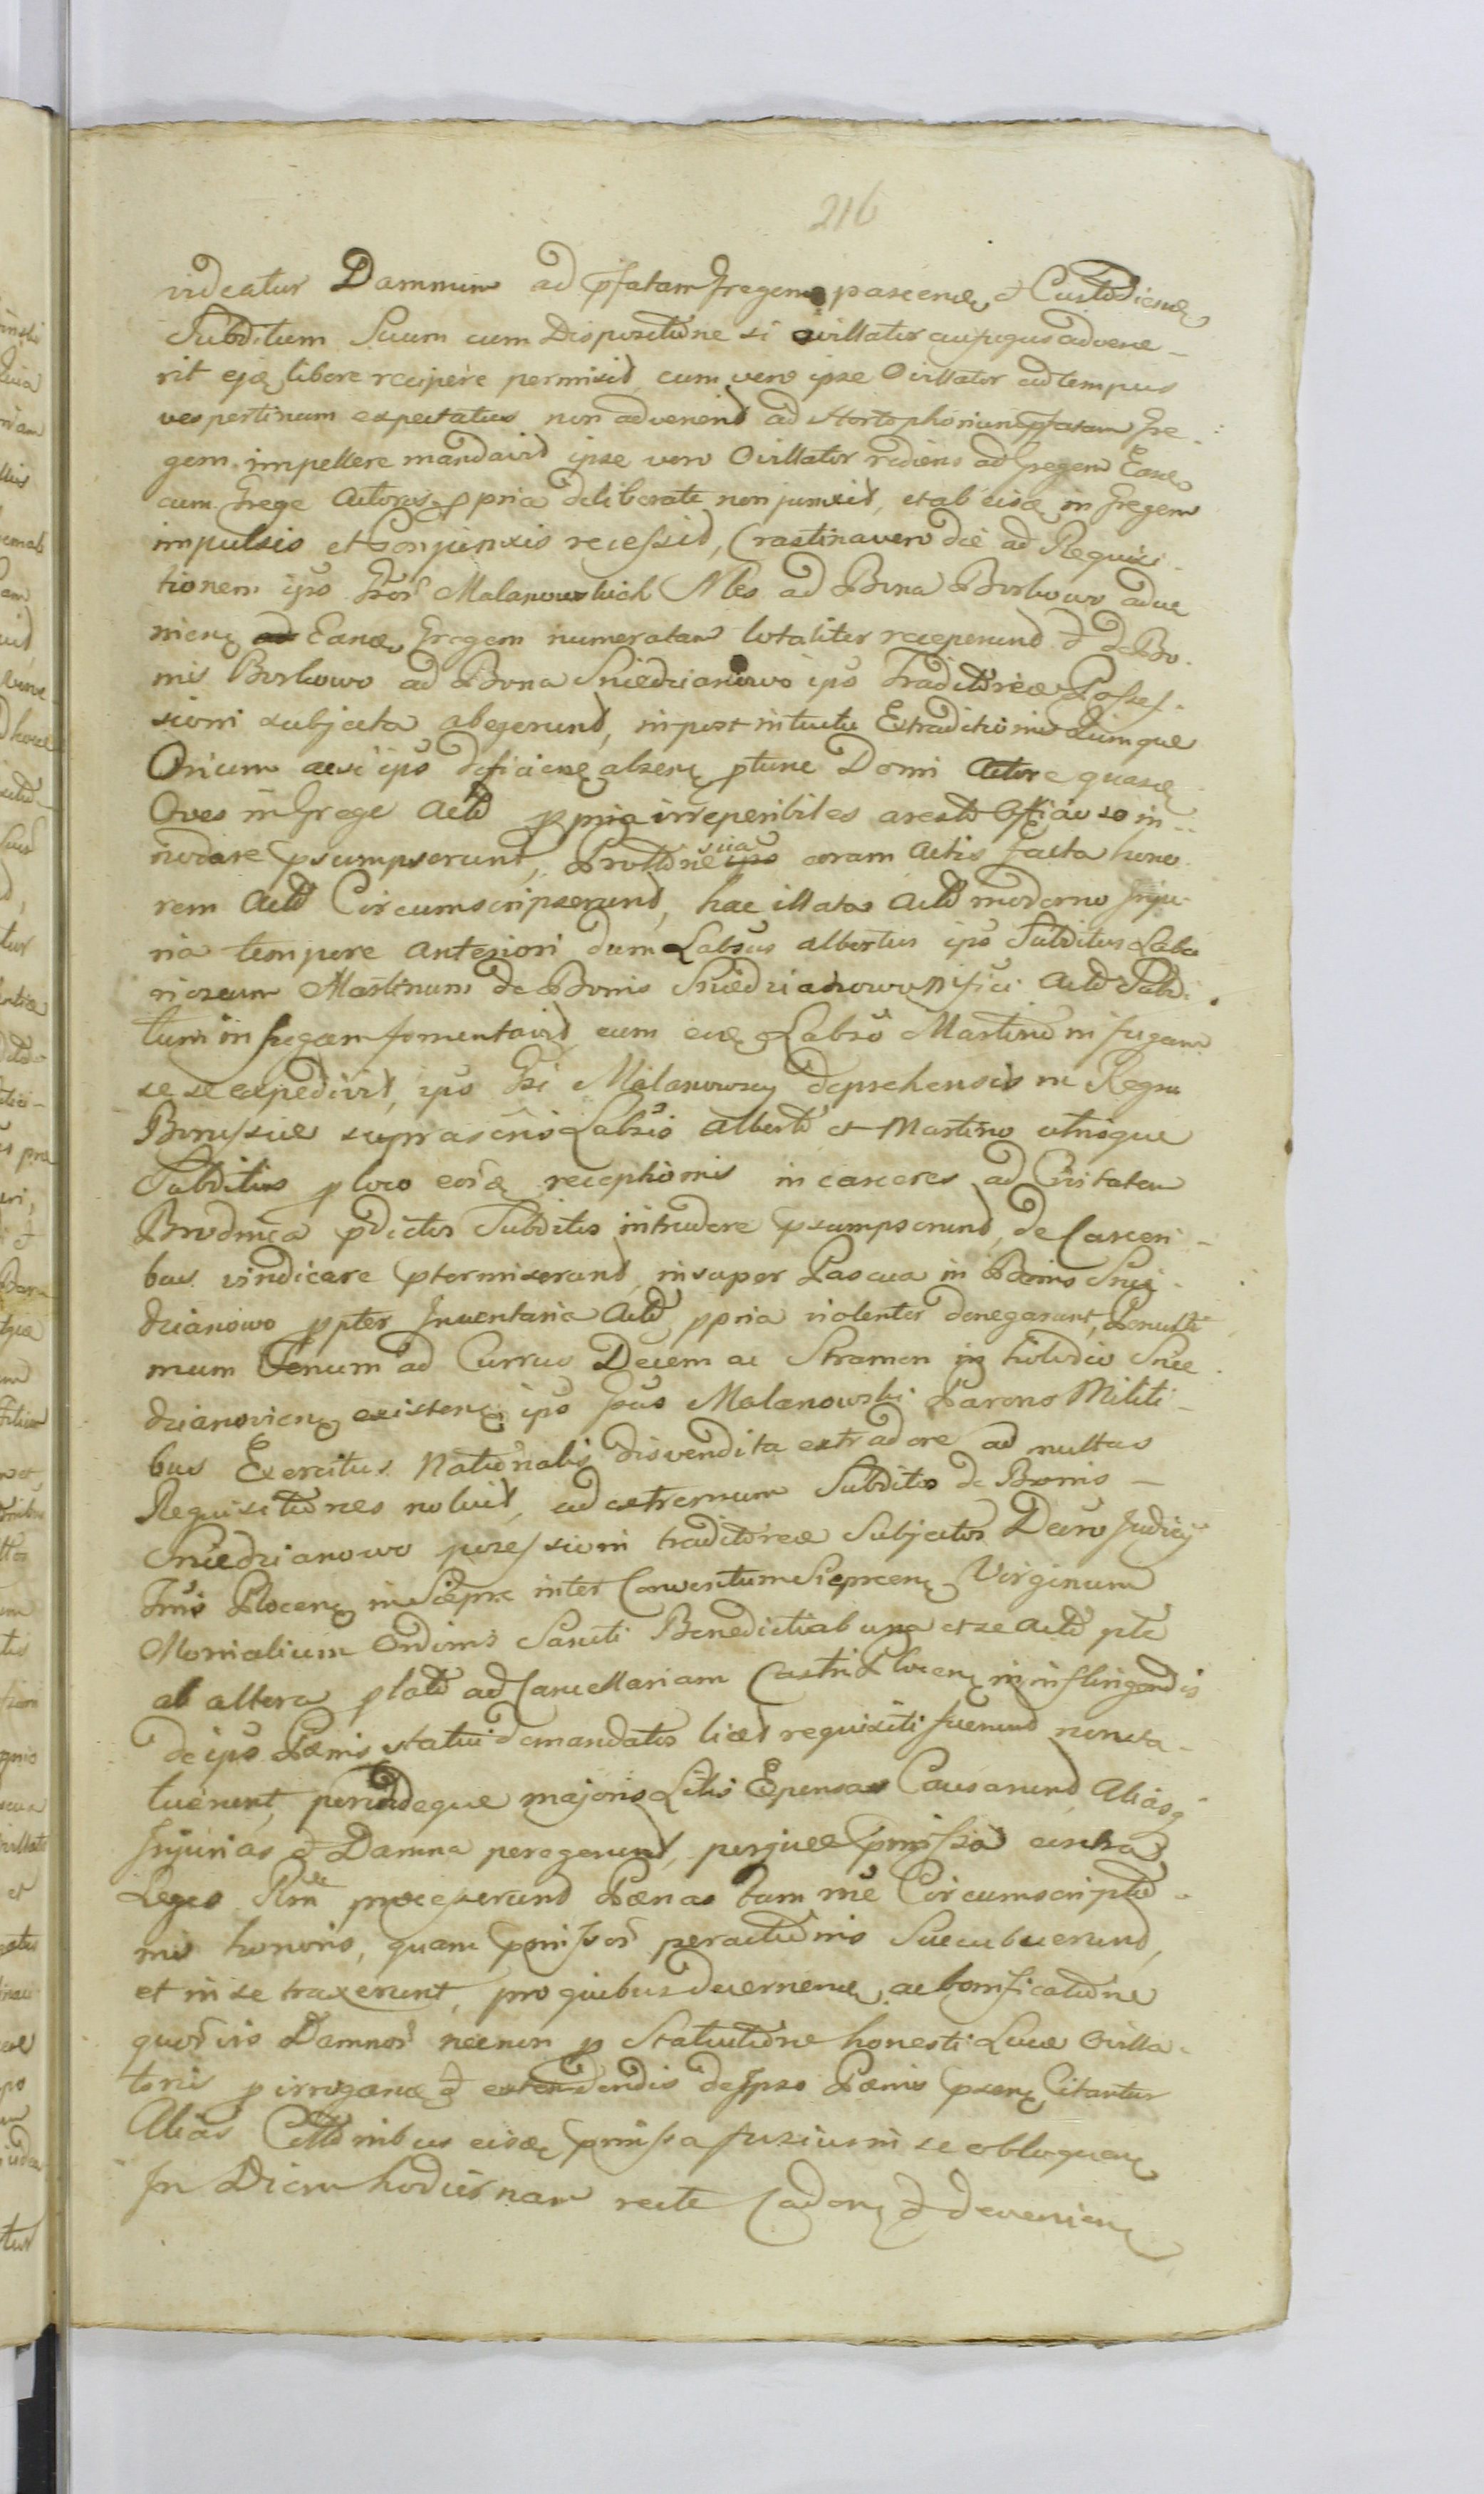 216
videatur Damnum ad pfatam Gregem pascend et Custodiend
Subditum Suum cum Dispositione si ovillator aufugus advene-
rit ejq libere recipere permisit cum vero ipse Ovillator ad tempus
vespertinum expectatus non advenerit ad Hortophorium pfatam Gre-
gem impellere mandavit ipse vero Ovillator rediens ad Gregem Eand
cum Grege Actoreo ppria deliberate non junxit, et ab eisd in Gregem
impulsis et Conjunxis recessit, Crastina vero die ad Requisi-
tionem ips Gsor Malanowskich Nles ad Bona Borkowo adve
nien ad Eand Gregem numeratam totaliter receperunt et de Bo-
nis Borkowo ad Bona Sniedzianowo ips Traditoriae Posses-
sioni subjecta abegerunt, in post intuitu Extraditionis Quinque
Ovium aevi ips deficien absen ptunc Domi Actore quasd
Oves in Grege Acto ppria irreperibiles aresto Offii au so in-
nodare psumpserunt, Prottone sua ips coram Actis facta hono
rem Acto Circumscripserunt, hac illata Acto moderno Inju-
ria tempore anteriori dum Labsus Albertus ips Subditus Labo
riosum Martinum de Bonis Sniedzianowo Acto Subdi
tum in fugam fomentavit eum eod Labso Martino in fugam
se se expedivit, ips Gsi Malanowscy deprehensis in Regno
Borussiae suprascris Labsis Alberto et Martino utrisque
Subditis p loco eor receptionis in carceres ad Civitatem
Brodnica pdictos Subditos intrudere psumpserunt, de Carceri-
bus vindicare ptermiserunt, insuper Pascua in Bonis Snie-
dzianowo ppter Inventaria Acto ppria violenter denegarunt, Penulti
mum Fenum ad Currus Decem ac Stramen in Snie
dzianovien existen ips Gsus Malanowski Militi-
bus Exercitus Nationalis disvendita extradere ad multas
Requisitiones noluit, ad extremum Subditos de Bonis -
Sniedzianowo possessioni traditoreae Subjectos Decro Judicij
Tris Plocen in Sierpc inter Conventum Sierpcen Virginum
Monialium Ordinis Sancti Benedicti ab una et se Acto pte
ab altera plato ad Cancellariam Castri Plocen in infligendis
de ips Paenis statui demandatos licet requisiti fuerunt non sta-
tuerunt, perindeque majoris Litis Expensas Causarunt Aliasq
Injurias et Damna peregerunt, perque pmissa contra
Leges Rnde processerunt Paenas tam rne Circumscriptio-
nis honoris, quam pmissor peractionis Succubuerunt,
et in se traxerunt, pro quibus decernend, ac bonificatione
quorvis Damnor necnon p Statutione honesti Lucae Ovilla-
toris p irrogand et extendendis de Ipso Paenis psen Citantur
Alias Cittonibus eisd pmissa fusius in se obloquen
In Diem hodiernam recte Caden et devenien